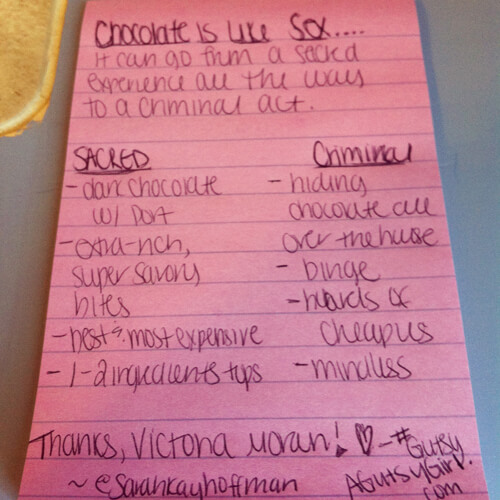 Chocolate is like Sex....
it can go from a sacred
experience all the way
to a criminal act.
SACRED
- dark chocolate
w/ port
- extra-rich,
super savory
bites
- best & most expensive
- 1-2 ingredients tops
Criminal
- hiding
chocolate all
over the house
- binge
- handfuls of
cheapies
- mindless
Thanks, Victoria Moran! ♡ - #Gutsy
~ @sarahkayhoffman
AGutsyGirl.
com